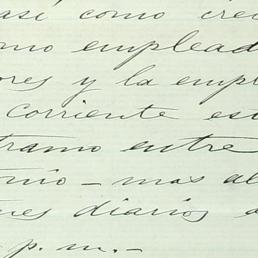 así como cree
omo emplead
ores y la empl
corriente est
tramo entre
onio - mas al
tres diarios a
p. m. -